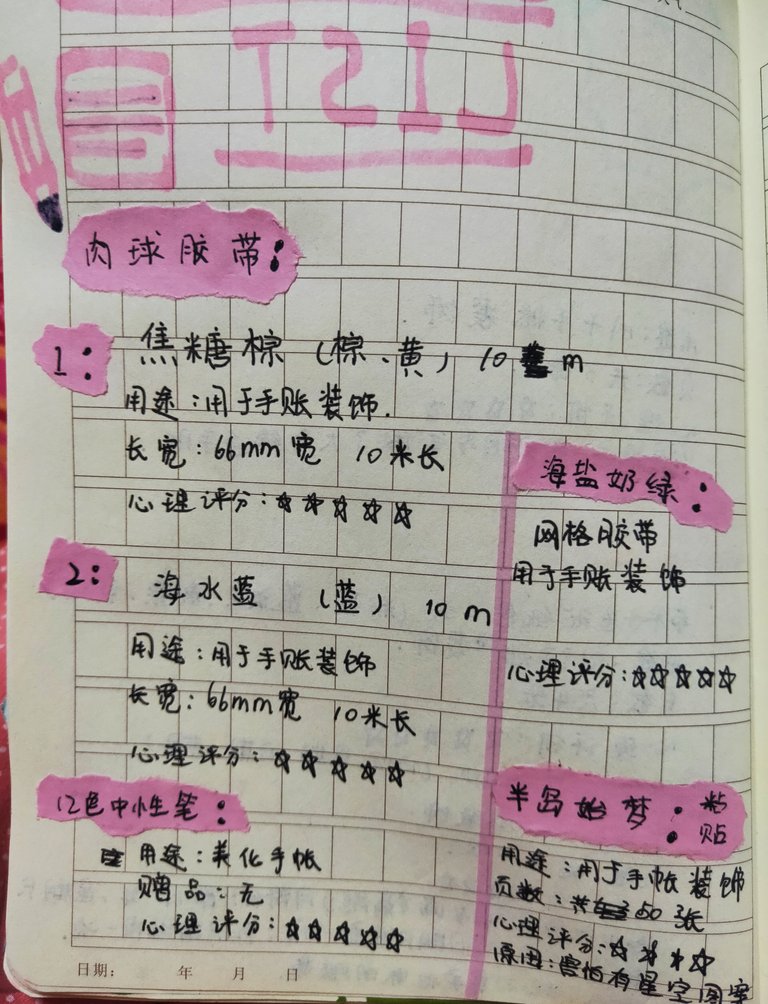 LIST
肉球胶带:
1: 焦糖棕(棕、黄) 10 m
用途:用于手账装饰.
长宽:66mm宽 10米长
心理评分:☆☆☆☆☆
2: 海水蓝 (蓝) 10 m
用途:用于手账装饰
长宽:66mm宽 10米长
心理评分:☆☆☆☆☆
12色中性笔:
用途:美化手帐
赠品:无
心理评分:☆☆☆☆☆
海盐奶绿:
网格胶带
用于手账装饰
心理评分:☆☆☆☆☆
半岛始梦:粘贴
用途:用于手帐装饰
页数:共50张
心理评分:☆☆☆☆
原因:害怕有星空图案
日期: 年 月 日